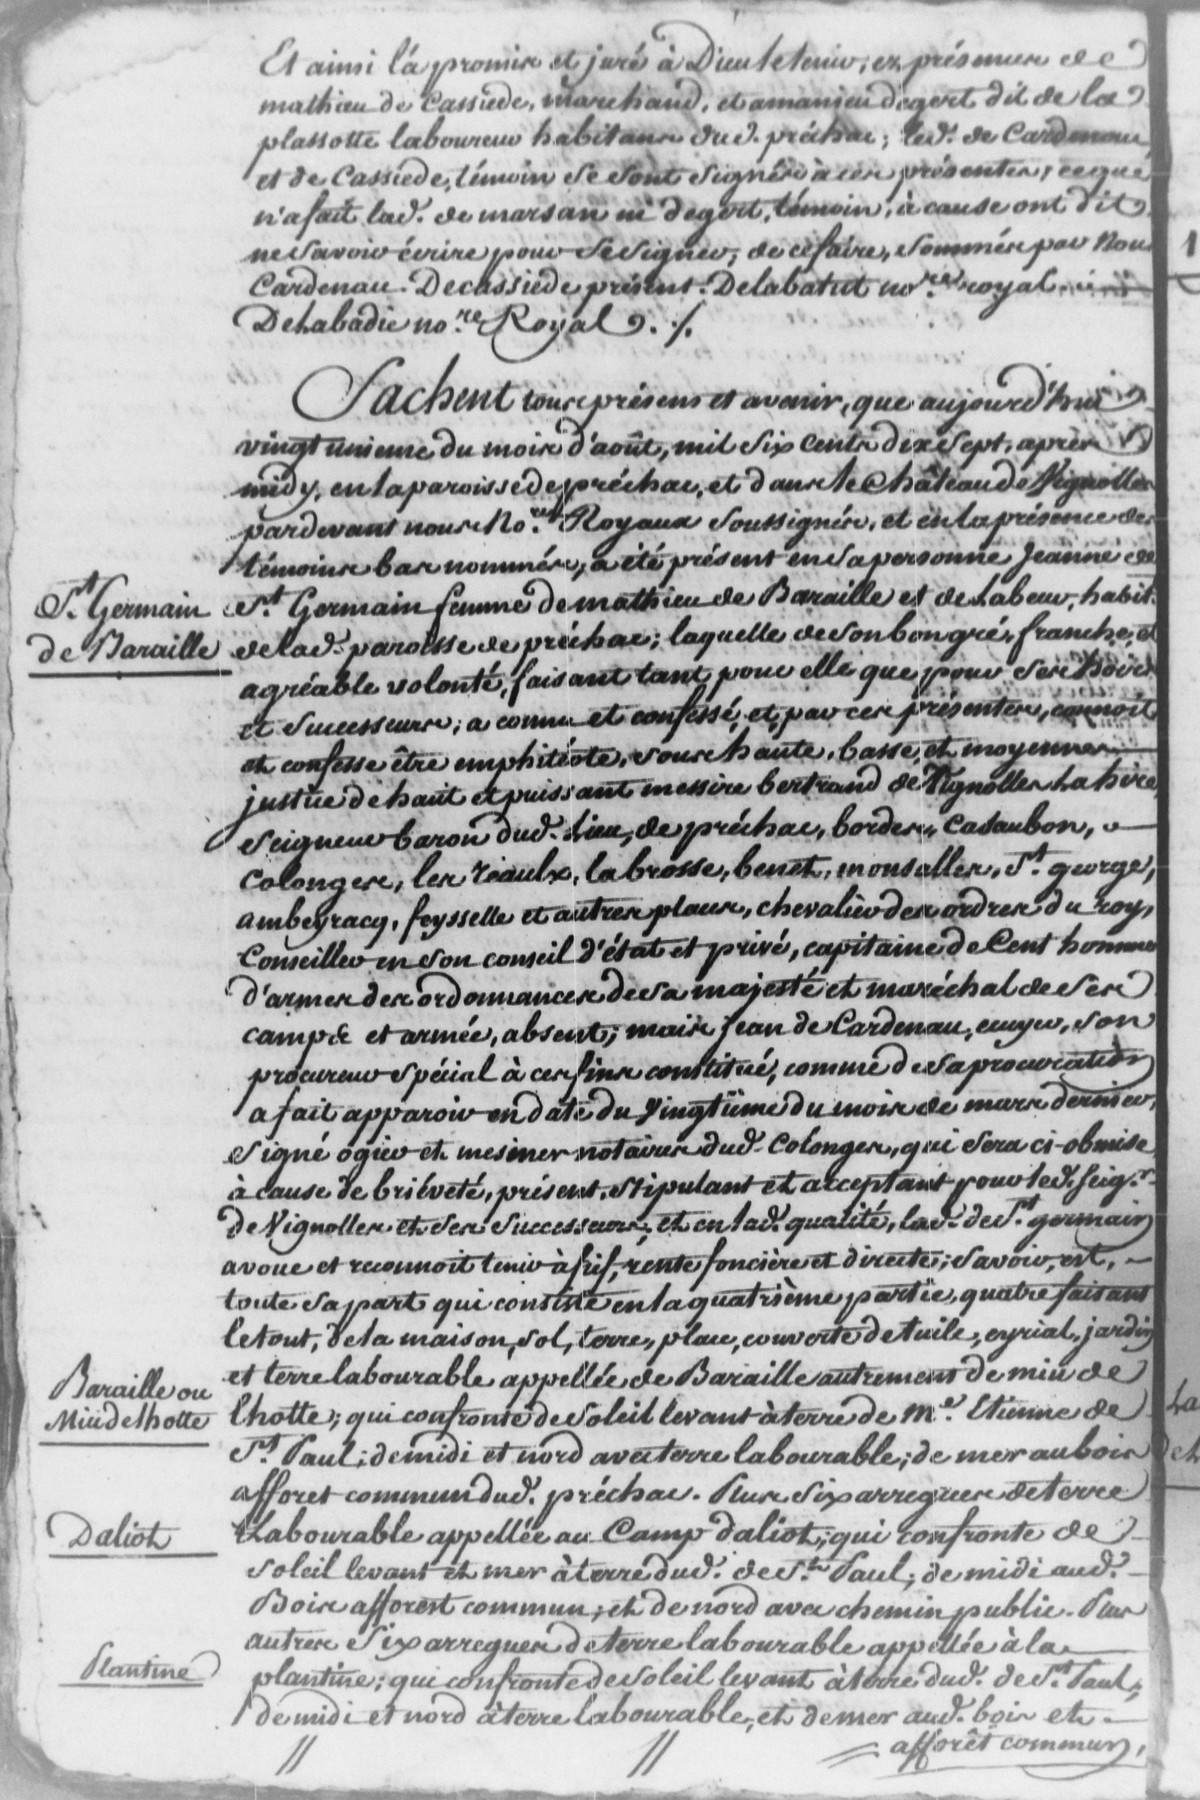 Et ainsi l'a promis et juré à Dieu le tenir, ez présences de
mathieu de Cassiede, marchand, et amanieu degert dit de la
plassotte laboureur habitans dud. préchac; led. de Cardenau,
et de Cassiede, témoin se sont signés à ces présentes, ce que
n'a fait lad. de marsan ni degert, témoin, à cause ont dit
ne savoir écrire pour se signer, de ce faire, sommés par Nous
Cardenau. Decassiede présent. Delabatut no.re royal.
Delabadie no.re Royal ./.
Sachent tous présens et avenir, que aujourd'hui
vingt unieme du mois d'août, mil six cents dix sept, après
midy, en la paroisse de préchac, et dans le Château de Vignolles
pardevant nous No.res Royaux soussignés, et en la présence des
témoins bas nommés, a été présent en sa personne Jeanne de
St. Germain femme de mathieu de Baraille et de Labeur, habit.
de lad. paroisse de préchac; laquelle de son bon gré, franche, et
agréable volonté, faisant tant pour elle que pour ses hoirs
et successeurs, a connu et confessé, et par ces présentes, connoit
et confesse être emphitéote, sous haute, basse, et moyenne
justice de haut et puissant messire bertrand de Vignolles Lahire,
Seigneur baron dud. Lieu, de préchac, bordes, Casaubon,
Colonges, les réaulx, la brosse, benet, monsalles, St. george,
ambeyracq, feysselle et autres places, chevalier des ordres du roy,
Conseiller en son conseil d'état et privé, capitaine de Cent hommes
d'armes des ordonnances de sa majesté et maréchal de ses
camps et armée, absent; mais jean de Cardenau, ecuyer, son
procureur spécial à ces fins constitué, comme de sa procuration
a fait apparoir en date du Vingtième du mois de mars dernier,
signé ogier et mesmer notaires dud. Colonges, qui sera ci-obmise
à cause de briéveté, présent, stipulant et acceptant pour led. Seig.r
de Vignolles et ses successeurs; et en lad. qualité, lad. de St. germain
avoue et reconnoit tenir à fief, rente foncière et directe; savoir, est,
toute sa part qui consiste en la quatrième partie, quatre faisant
le tout, de la maison, sol, terre, place, couverte de tuile, eyrial, jardin
et terre labourable appellée de Baraille autrement de miu de
lhotte; qui confronte de soleil levant à terre de M.e Etienne de
St. Paul; de midi et nord avec terre labourable; de mer au bois
afforet commun dud. préchac. Plus six arregues de terre
Labourable appellée au Camp daliot; qui confronte de
soleil levant et mer à terre dud. de St. Paul; de midi aud.
Bois afforêt commun; et de nord avec chemin public. Plus
autres six arregues de terre labourable appellée à la
plantine; qui confronte de soleil levant à terre dud. de St. Paul,
de midi et nord à terre labourable, et de mer aud. bois et
afforêt commun,
St. Germain
de Baraille
Baraille ou
Miu de lhotte
Daliot
Plantine